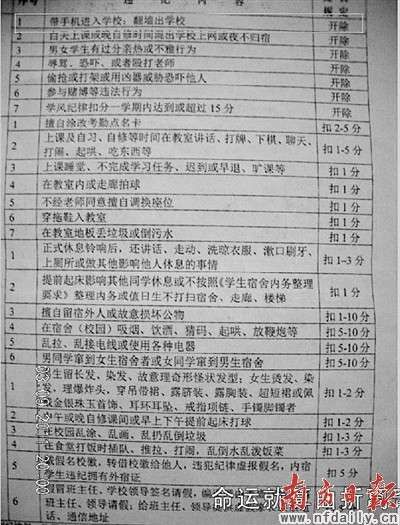 序号 违纪内容 规定
1 带手机进入学校；翻墙出学校 开除
2 白天上课或晚自修时间混出学校上网或夜不归宿 开除
3 男女学生有过分亲热或不雅行为 开除
4 辱骂、恐吓、或者殴打老师 开除
5 偷抢或打架或用凶器威胁恐吓他人 开除
6 参与赌博等违法行为 开除
7 学风纪律扣分一学期内达到或超过15分 开除
1 擅自涂改考勤点名卡 扣2-5分
2 上课及自习、自修等时间在教室讲话、打牌、下棋、聊天、
打闹、起哄、吃东西等 扣1-5分
3 上课睡觉、不完成学习任务、迟到或早退、旷课等 扣1分
4 在教室内或走廊拍球 扣1分
5 不经老师同意擅自调换座位 扣1分
6 穿拖鞋入教室 扣1分
7 在教室地板丢垃圾或倒污水 扣1分
1 正式休息铃响后，还讲话、走动、洗晾衣服、漱口刷牙、
上厕所或做其他影响他人休息的事情 扣1-3分
2 提前起床影响其他同学休息或不按照《学生宿舍内务整理
要求》整理内务或值日生不打扫宿舍、走廊、楼梯 扣1分
3 擅自留宿外人或故意损坏公物 扣1-10分
4 在宿舍（校园）吸烟、饮酒、猜码、起哄、放鞭炮等 扣5-10分
5 乱拉、乱接电线或使用各种电器 扣5-10分
6 男同学窜到女生宿舍者或女同学窜到男生宿舍 扣5-10分
1 男生留长发、染发、故意理奇形怪状发型；女生烫发、染
发、理爆炸头，穿吊带裙、露脐装、露胸装、超短裙或佩
金银珠玉首饰、耳环耳坠、戒指项链、手镯脚镯者 扣1-2分
2 中午或晚自修课间或早上下午提前起床打球 扣1-2分
3 在校园乱涂、乱画、乱扔乱倒垃圾 扣1-3分
4 在食堂打饭时插队、推拉、打闹、乱倒水乱泼饭菜 扣1-3分
5 假名校徽、转借校徽给他人、违犯纪律虚报假名，内宿
学生违纪拥有外宿证 扣5分
6 冒班主任、学校领导签名请假，
班主任、领导请假、给班主任、领导
话、通信地址
命运就算曲折离奇
南方日报
www.nfdaily.cn